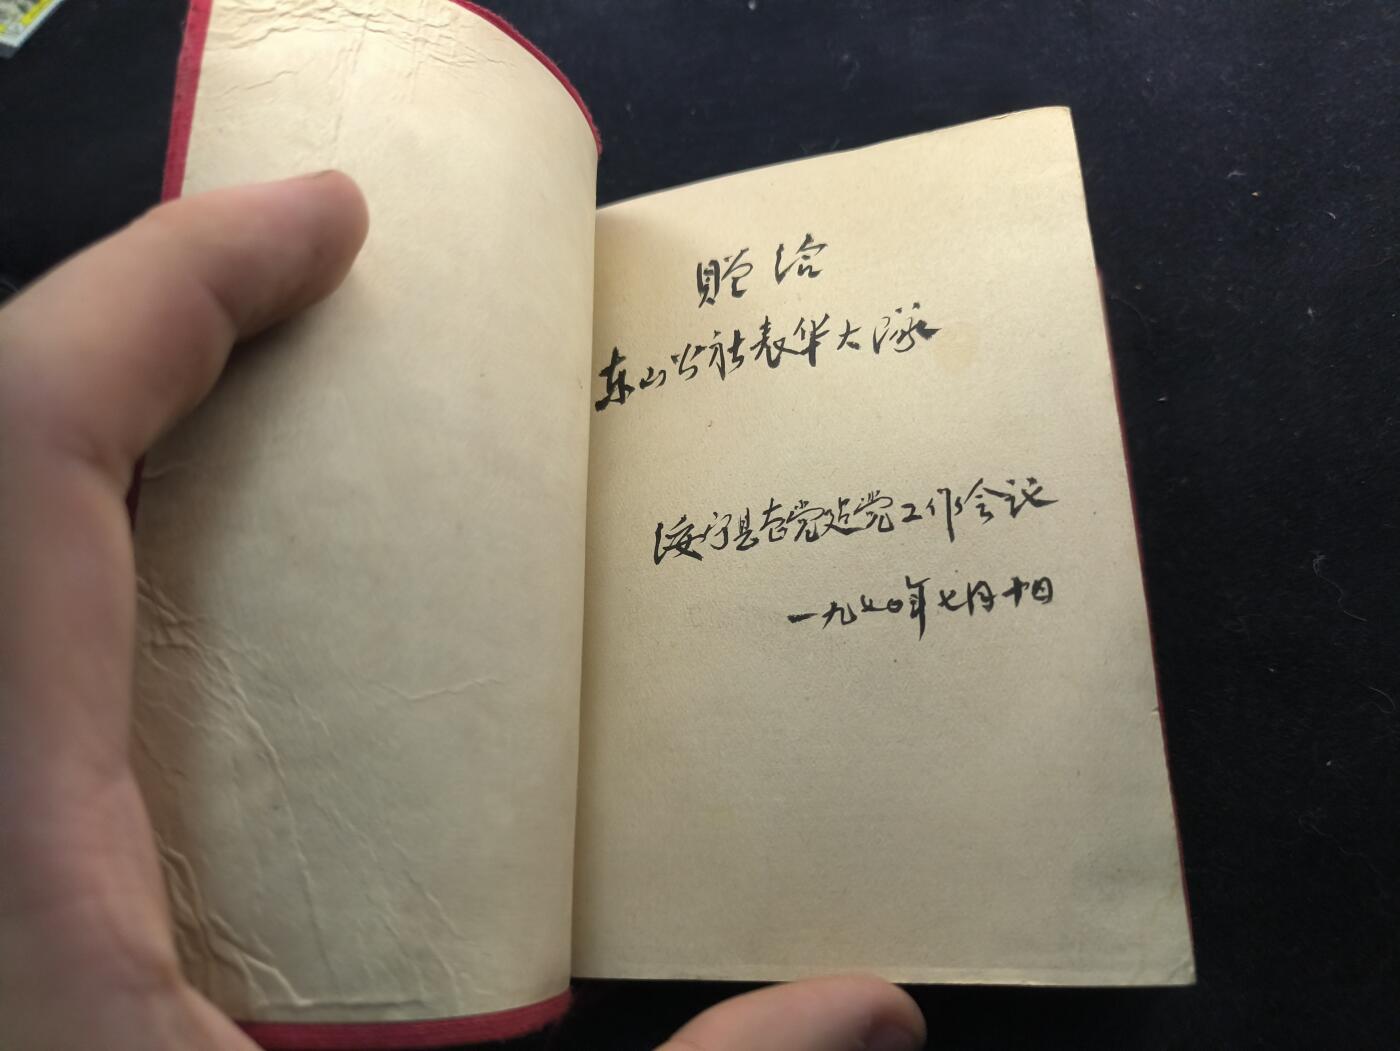 赠给
东山公社表华大队
绥宁县整党建党工作会议
一九七〇年七月十日